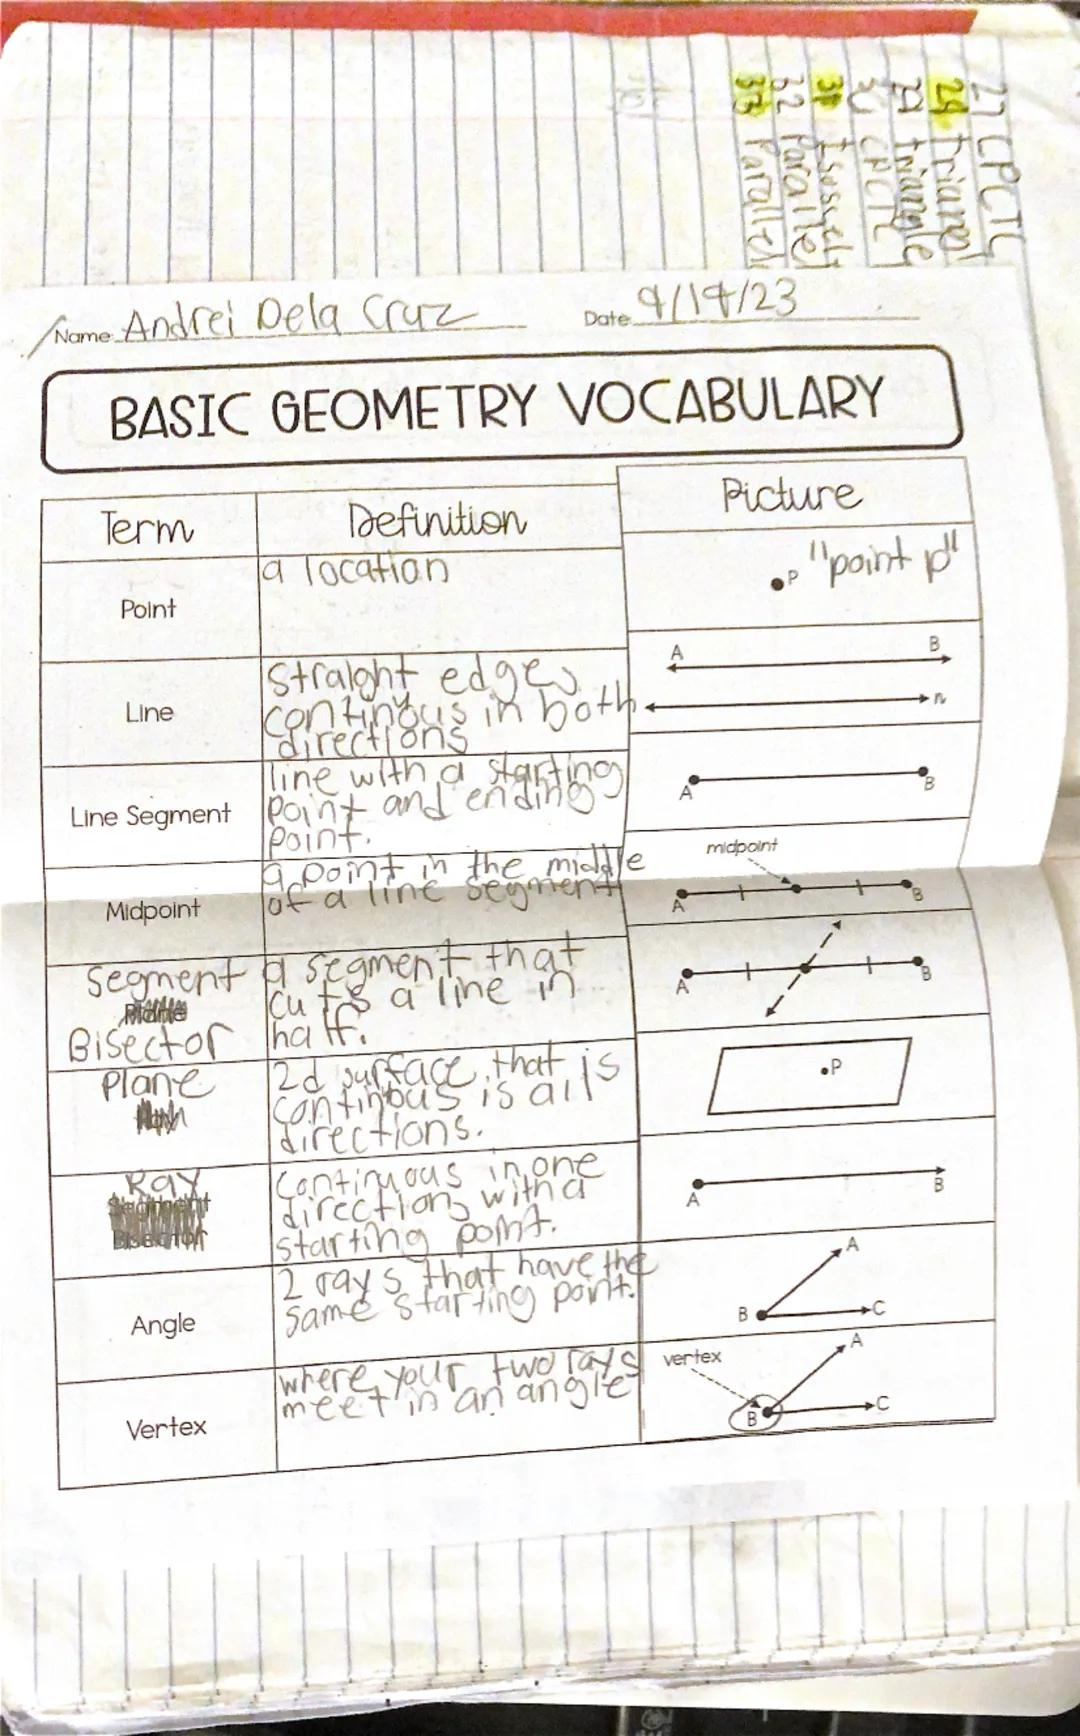 27 CPCTC
28 triangl
29 triangle
30 CPCTC
31
32 Parallel
33 Parallel
Name: Andrei Dela Cruz Date: 9/14/23
BASIC GEOMETRY VOCABULARY
Term Definition Picture
Point
a location
P "point p"
Line
Straight edges
continous in both
directions
A B
n
Line Segment
line with a starting
point and ending
point.
A B
Midpoint
a point in the middle
of a line segment
midpoint
A B
Segment
Bisector
a segment that
cuts a line in
half.
A B
Plane
2d surface that is
continous is all
directions.
P
Ray
continuous in one
direction, with a
starting point.
A B
Angle
2 rays that have the
same starting point.
A
B C
Vertex
where your two rays
meet in an angle
vertex
A
B C